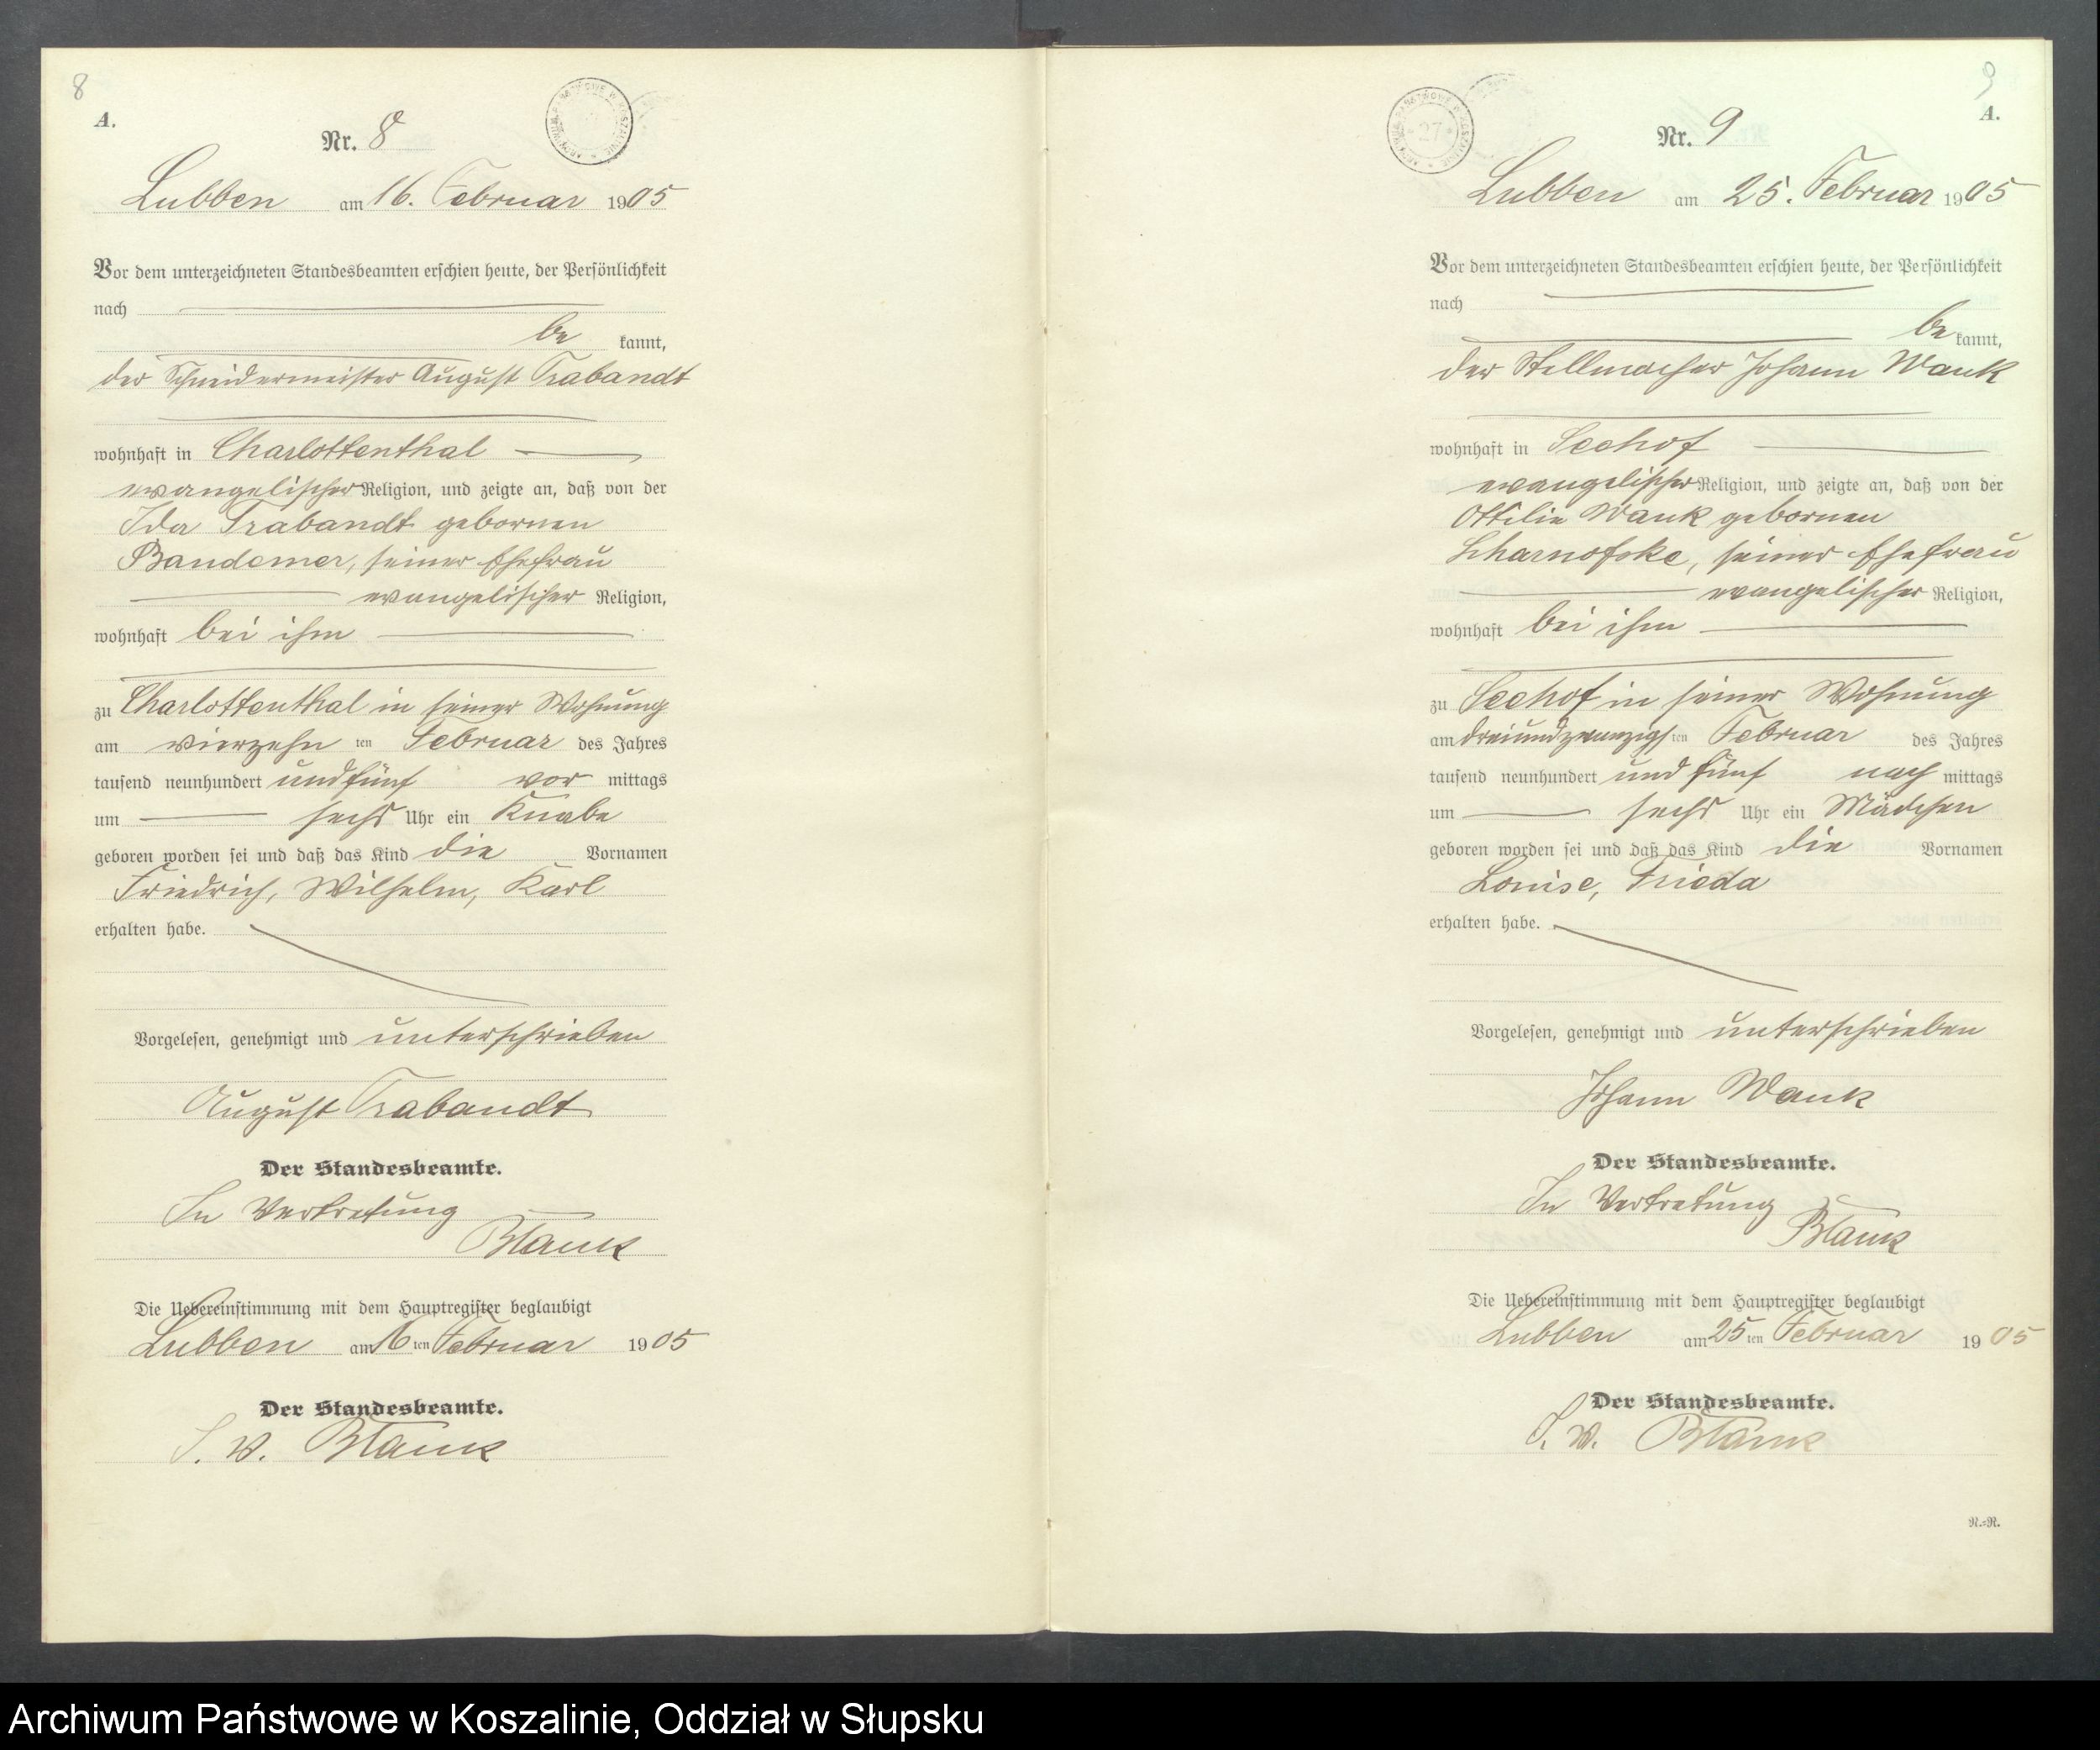 8
A.
Nr. 8
ARCHIWUM PAŃSTWOWE W KOSZALINIE
Lubben am 16. Februar 1905
Vor dem unterzeichneten Standesbeamten erschien heute, der Persönlichkeit
nach
be kannt,
der Schneidermeister August Trabandt
wohnhaft in Charlottenthal
evangelischer Religion, und zeigte an, daß von der
Ida Trabandt gebornen
Bandemer, seiner Ehefrau
evangelischer Religion,
wohnhaft bei ihm
zu Charlottenthal in seiner Wohnung
am vierzehn ten Februar des Jahres
tausend neunhundert und fünf vor mittags
um sechs Uhr ein Knabe
geboren worden sei und daß das Kind die Vornamen
Friedrich, Wilhelm, Karl
erhalten habe.
Vorgelesen, genehmigt und unterschrieben
August Trabandt
Der Standesbeamte.
In Vertretung
Blank
Die Uebereinstimmung mit dem Hauptregister beglaubigt
Lubben am 16 ten Februar 1905
Der Standesbeamte.
I. V. Blank
9
A.
Nr. 9
ARCHIWUM PAŃSTWOWE W KOSZALINIE
27
Lubben am 25. Februar 1905
Vor dem unterzeichneten Standesbeamten erschien heute, der Persönlichkeit
nach
be kannt,
der Stellmacher Johann Wank
wohnhaft in Seehof
evangelischer Religion, und zeigte an, daß von der
Ottilie Wank gebornen
Scharnofske, seiner Ehefrau
evangelischer Religion,
wohnhaft bei ihm
zu Seehof in seiner Wohnung
am dreiundzwanzigs ten Februar des Jahres
tausend neunhundert und fünf nach mittags
um sechs Uhr ein Mädchen
geboren worden sei und daß das Kind die Vornamen
Louise, Frieda
erhalten habe.
Vorgelesen, genehmigt und unterschrieben
Johann Wank
Der Standesbeamte.
In Vertretung
Blank
Die Uebereinstimmung mit dem Hauptregister beglaubigt
Lubben am 25 ten Februar 1905
Der Standesbeamte.
I. V. Blank
N.=N.
Archiwum Państwowe w Koszalinie, Oddział w Słupsku